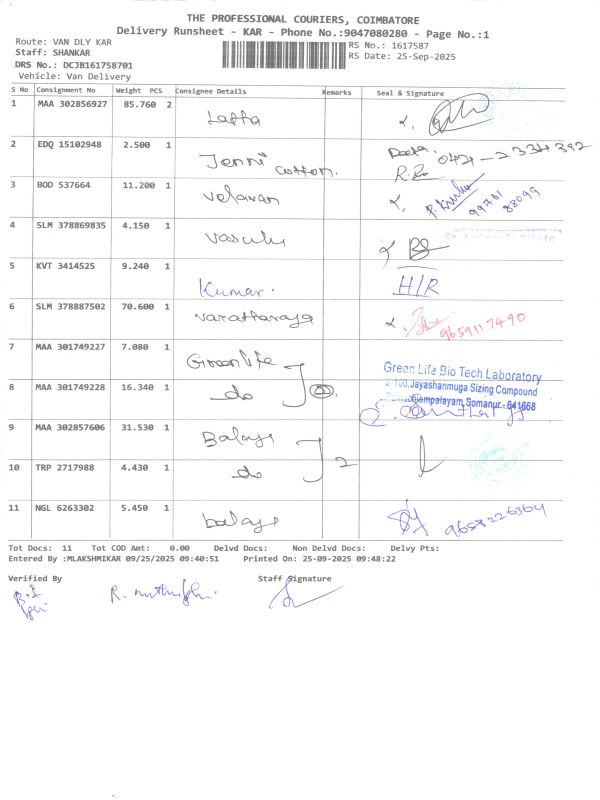 THE PROFESSIONAL COURIERS, COIMBATORE
Delivery Runsheet - KAR - Phone No.:9047080280 - Page No.:1
Route: VAN DLY KAR
Staff: SHANKAR
DRS No.: DCJB161758701
Vehicle: Van Delivery
RS No.: 1617587
RS Date: 25-Sep-2025
S No Consignment No Weight PCS Consignee Details Remarks Seal & Signature
1 MAA 302856927 85.760 2 Latha
2 EDQ 15102948 2.500 1 Jenni cotton. 0421-2334392
3 BOD 537664 11.200 1 Velavan 99761 88099
4 SLM 378869835 4.150 1 Vasuki
5 KVT 3414525 9.240 1 Kumar. H/R
6 SLM 378887502 70.600 1 Varatharaja 9659117490
7 MAA 301749227 7.080 1 Greenlife
Green Life Bio Tech Laboratory
2/100,Jayashanmuga Sizing Compound
Somanur - 641668
8 MAA 301749228 16.340 1 do
9 MAA 302857606 31.530 1 Balaji
10 TRP 2717988 4.430 1 do 2
11 NGL 6263302 5.450 1 balaji 9659226364
Tot Docs: 11 Tot COD Amt: 0.00 Delvd Docs: Non Delvd Docs: Delvy Pts:
Entered By :MLAKSHMIKAR 09/25/2025 09:40:51 Printed On: 25-09-2025 09:48:22
Verified By Staff Signature